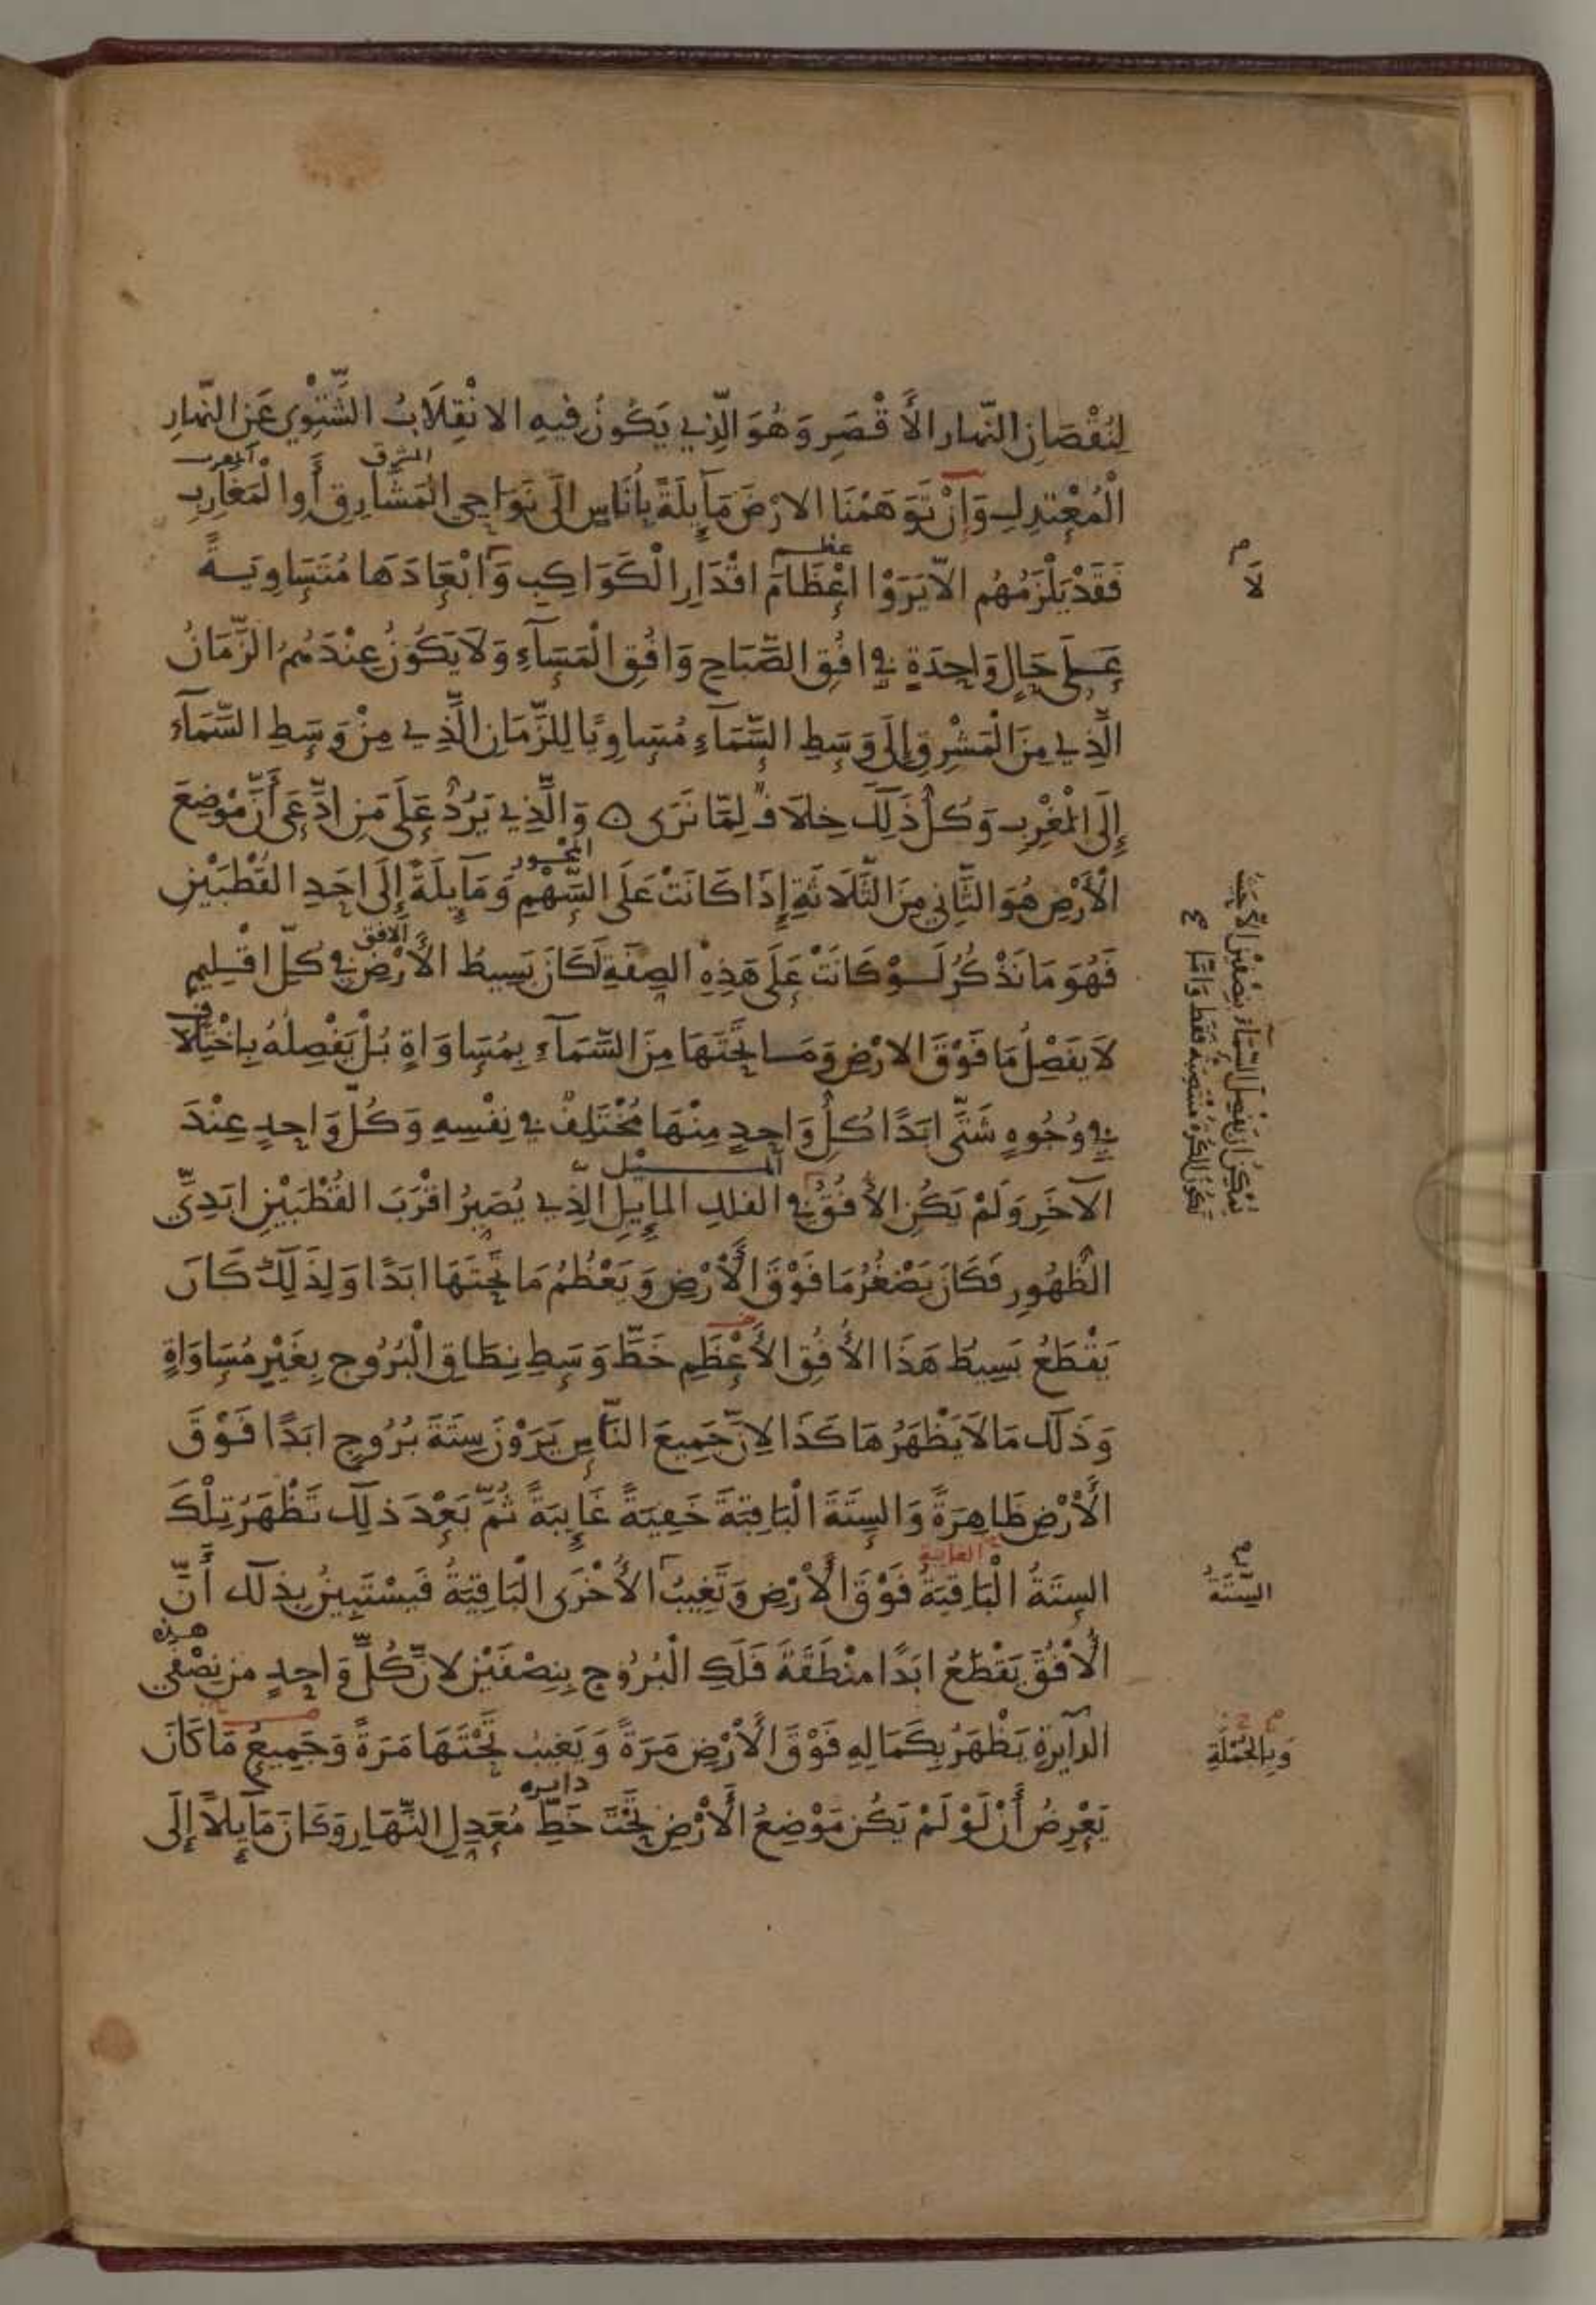 لِنُقْصَانِ النّهار الأَقْصَرِ وَهُوَ الَّذِي يَكُونُ فِيهِ الانْقِلَابُ الشَّتْوِي عَنِ النّهارِ
المشرق المغرب
الْمُعْتدِلِ وَإِنْ تَوَهَمْنَا الارْضَ مَآيِلَةً بِأُنَاسٍ الَى نَوَاحِي المَشَارِقِ أَوِ الْمَغَارِبِ
عظم
فَقَدْ يَلْزَمُهُم الاّ يَرَوْا اعْظَامَ اقْدَارِ الْكَوَاكِبِ وَابْعَادَهَا مُتَسَاوِيَةً
عَلَى حَالٍ وَاحِدَةٍ فِي افُقِ الصَّبَاحِ وَافُقِ الْمَسَآءِ وَلَا يَكُونُ عِنْدَهُمُ الزَّمَانُ
الَّذِي مِنَ الْمَشْرِقِ إِلَى وَسَطِ السَّمَآءِ مُسَاوِيًا لِلزَّمَانِ الَّذِي مِنْ وَسَطِ السَّمَآءِ
إِلَى الْمَغْرِبِ وَكُلُّ ذَلِكَ خِلَافٌ لِمّا نَرَى ه وَالَّذِي يَرُدُّ عَلَى مَنِ ادَّعَى أَنَّ مَوْضِعَ
المحور
الْأَرْضِ هُوَ الثَّانِي مِنَ الثَّلَاثَةِ إِذَا كَانَتْ عَلَى السَّهْمِ وَمَآيِلَةً إِلَى احَدِ القُطْبَيْنِ
الافق
فَهُوَ مَا نَذْكُرُ لَوْ كَانَتْ عَلَى هَذِهِ الصِفَةِ لَكَانَ بَسِيطُ الأَرْضِ فِي كُلِّ اقْلِيمٍ
لَا يَفَصِلُ مَا فَوْقَ الارْضِ وَمَا تَحْتَهَا مِنَ السَّمَآءِ بِمُسَاوَاةٍ بَلْ يَفْصِلُهُ بِاخْتِلَافٍ
فِي وُجُوهٍ شَتَّى ابَدًا كُلُّ وَاحِدٍ مِنْهَا مُخْتَلِفٌ فِي نَفْسِهِ وَكُلُّ وَاحِدٍ عِنْدَ
الميل
الآخَرِ وَلَمْ يَكُنِ الأُفُقُ فِي الفلكِ المايِلِ الَّذِي يُصَيِرُ اقْرَبَ القُطْبَيْنِ ابَدِيَّ
الظُهُورِ فَكَانَ يَصْغُرُ مَا فَوْقَ الْأَرْضِ وَيَعْظُمُ مَا تَحْتَهَا ابَدًا وَلِذَلِكَ كَانَ
يَقْطَعُ بَسِيطُ هَذَا الأُفُقِ الأَعْظَمِ خَطَّ وَسَطِ نِطَاقِ الْبُرُوجِ بِغَيْرِ مُسَاوَاةٍ
وَذَلَك مَا لَا يَظْهَرُ هَاكَذَا لِانَّ جَمِيعَ النَّاسِ يَرَوْنَ سِتَةَ بُرُوجٍ ابَدًا فَوْقَ
الْأَرْضِ ظَاهِرَةً وَالسِتَةَ الْبَاقِيَةَ خَفِيَةً غَايِبَةً ثُمَّ بَعْدَ ذلِك تَظْهَرُ تِلْكَ
الغايبة
السِتَةُ الْبَاقِيَةُ فَوْقَ الْأَرْضِ وَتَغِيبُ الأُخْرَى الْبَاقِيَةُ فَيسْتَبِينُ بِذلَك أَنَّ
هذه
الأُفُقَ يَقْطَعُ ابَدًا منْطَقَةَ فَلَكِ الْبُرُوجِ بِنِصْفَيْنِ لانَّ كُلَّ وَاحِدٍ من نِصْفَي
الدآيرةِ يَظْهَرُ بِكَمَالِهِ فَوْقَ الْأَرْضِ مَرَةً وَيَغيبُ تَحْتَهَا مَرَةً وَجَمِيعُ مَا كَانَ
دايره
يَعْرِضُ أَنْ لَوْ لَمْ يَكُن مَوْضِعُ الْأَرْضِ تَحْتَ خَطِّ مُعَدِلِ النَّهَارِ وَكَانَ مَآيِلاً إِلَى
يُمْكِنُ ان يَفْصِلَ السَّمَآءَ بِنِصْفَيْنِ الَّا حَيْثُ
تَكُونُ الكُرَةُ مُنْتَصِبَةً فَقَط وَامَّا
السِتَةُ
وَبِالجُمْلَةِ